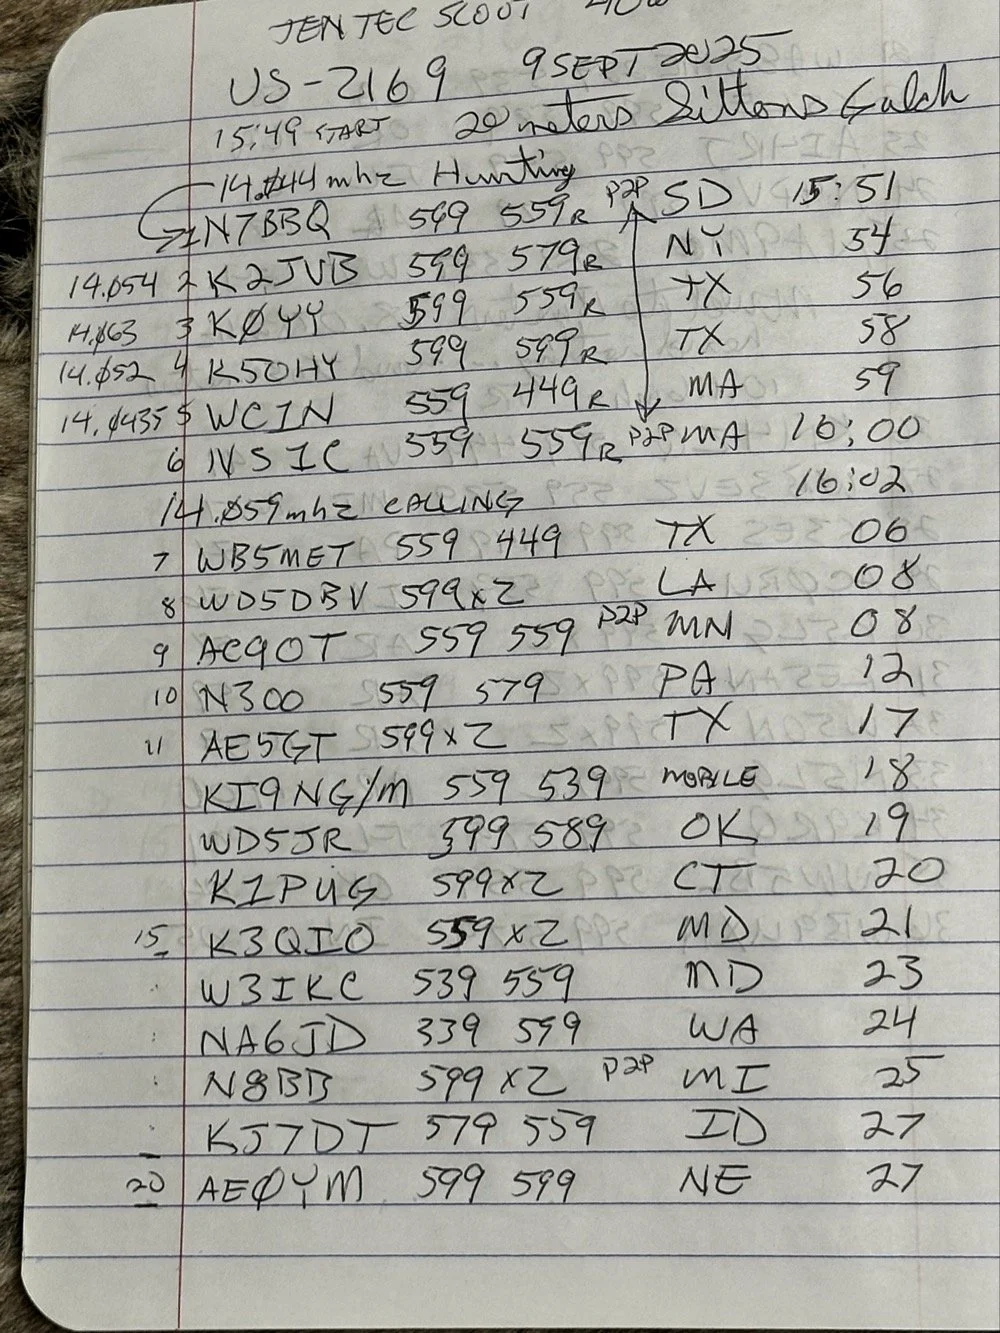 TEN TEC SCOUT 40w
US-2169 9 SEPT 2025
15:49 START 20 meters Sittons Gulch
14.044 mhz Hunting
1 N7BBQ 599 559R P2P SD 15:51
14.054 2 K2JVB 599 579R NY 54
14.063 3 KØYY 599 559R TX 56
14.052 4 K5OHY 599 599R TX 58
14.0435 5 WC1N 559 449R MA 59
6 NS1C 559 559R P2P MA 16:00
14.059 mhz CALLING 16:02
7 WB5MET 559 449 TX 06
8 WD5DBV 599x2 LA 08
9 AC9OT 559 559 P2P MN 08
10 N3OO 559 579 PA 12
11 AE5GT 599x2 TX 17
KI9NG/M 559 539 MOBILE 18
WD5JR 599 589 OK 19
K1PUG 599x2 CT 20
15 K3QIO 559x2 MD 21
W3IKC 539 559 MD 23
NA6JD 339 599 WA 24
N8BB 599x2 P2P MI 25
KJ7DT 579 559 ID 27
20 AEØYM 599 599 NE 27